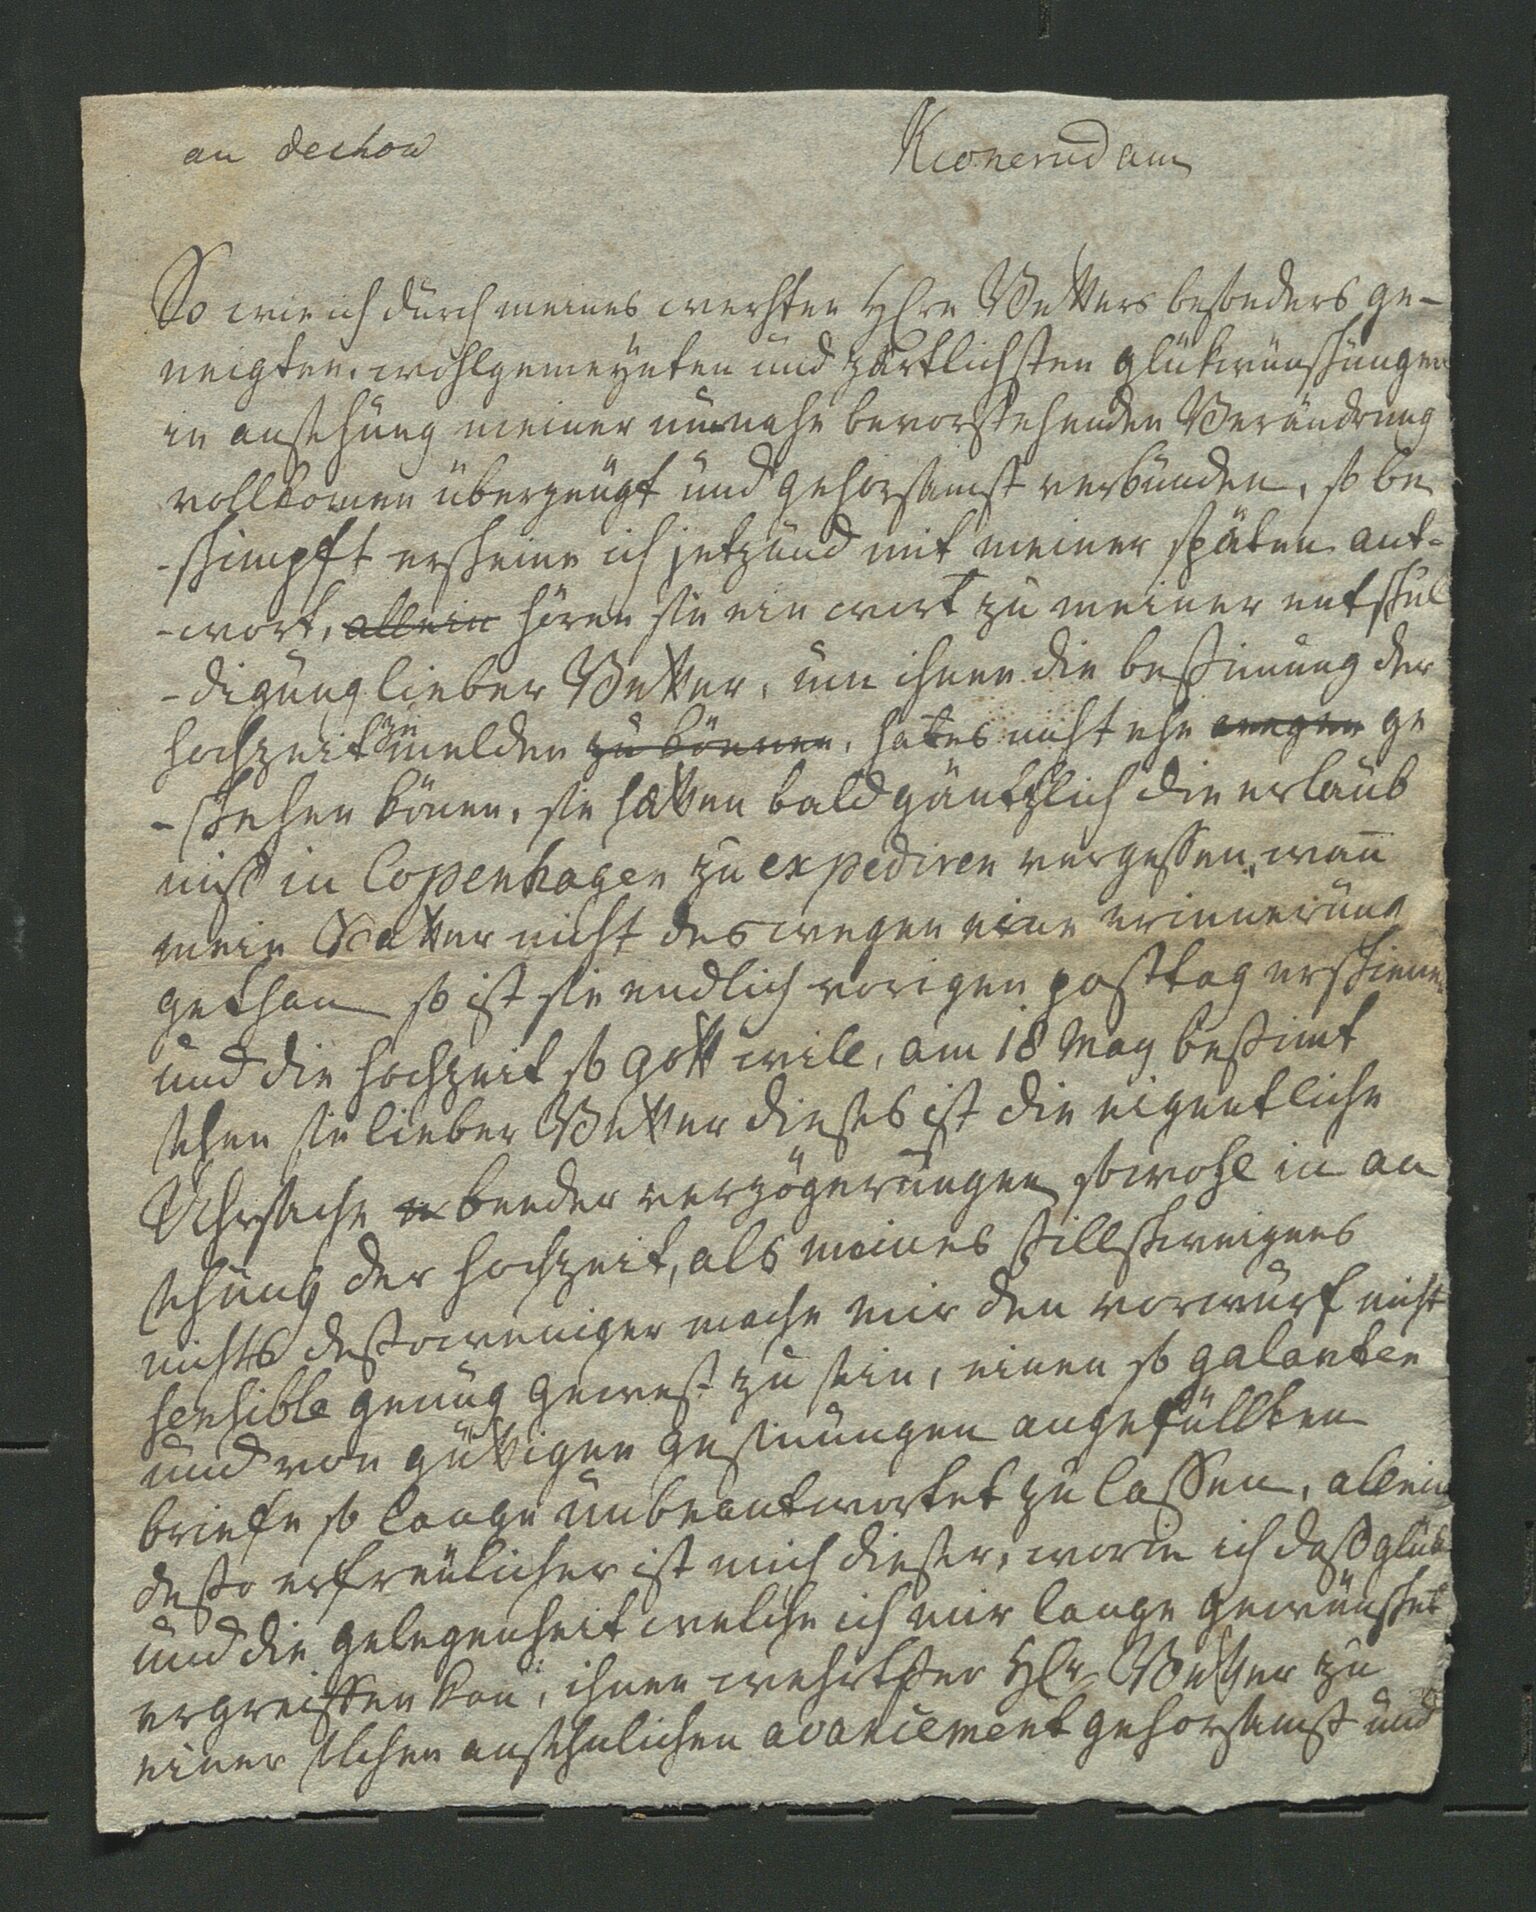 an dechow
So wie ich durch meines werhten Hhrn Vetters besonders ge-
neigten, wohlgemeÿnten und zärtlichsten glükwünschungen
in ansehung meiner nu nahe bevorstehenden Verändrung
vollkomen überzeugt und gehorsamst verbunden, so be
-schimpft erscheine ich jetzund mit meiner späten ant-
-wort, allein hören sie ein wort zu meiner entschul
-digung lieber Vetter, um ihnen die bestimung der
hochzeit zu melden zu können, hat es nicht ehe wegen ge
-schehen könen, sie hätten bald gäntzlich die erlaub
niß in Copenhagen zu expediren vergessen, wan̄
mein Vatter nicht deswegen eine erinnerüng
gethan so ist sie endlich vorigen posttag erschienen
und die hochzeit so gott will, am 18 May bestimt
sehen sie lieber Vetter dieses ist die eigentliche
Uhrsache beeder verzögerungen sowohl in an
sehung der hochzeit, als meines stillschweigens
nichts destoweniger mache mir den vorwurf nicht
sensible genug gewest zu sein, einen so galanten
und von gütigen gesinungen angefüllten
briefe so lange unbeantwortet zu lassen, allein
desto erfreulicher ist mich dieser, worin ich daß glük
und die gelegenheit welche ich mir lange gewünschet
ergreiffen kan̄, ihnen wehrtster Hhr Vetter zu
einer solchen ansehnlichen avancement gehorsamst und